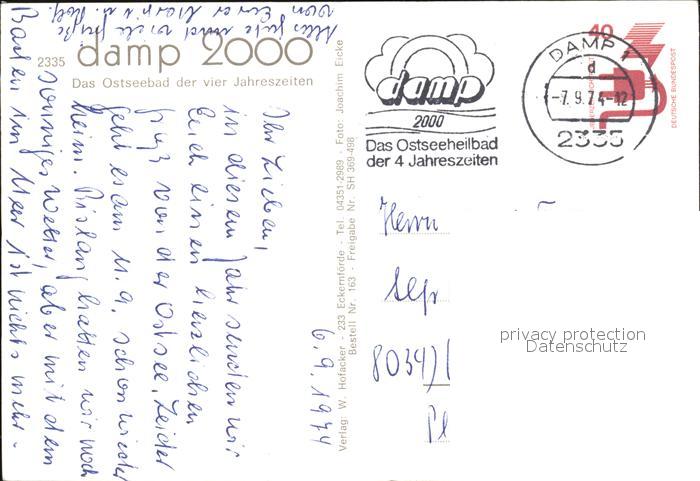 Alles Gute und viele Grüße
von Eurer
2335 damp 2000
Das Ostseebad der vier Jahreszeiten
6.9.1974
Ihr Lieben,
in diesem Jahr senden wir
Euch einen herzlichen
Gruß von der Ostsee. Leider
geht es am 11.9. schon wieder
heim. Bislang hatten wir noch
sonniges Wetter, aber mit dem
Baden im Meer ist nichts mehr.
Verlag: W. Hofacker - 233 Eckernförde - Tel. 04351-2989 - Foto: Joachim Eicke
Bestell Nr. 163 - Freigabe Nr. SH 369-498
damp
2000
Das Ostseeheilbad
der 4 Jahreszeiten
DAMP 1
d
-7.9.74-12
2335
40
DEUTSCHE BUNDESPOST
Herrn
Sepp
8034
Pl
privacy protection
Datenschutz